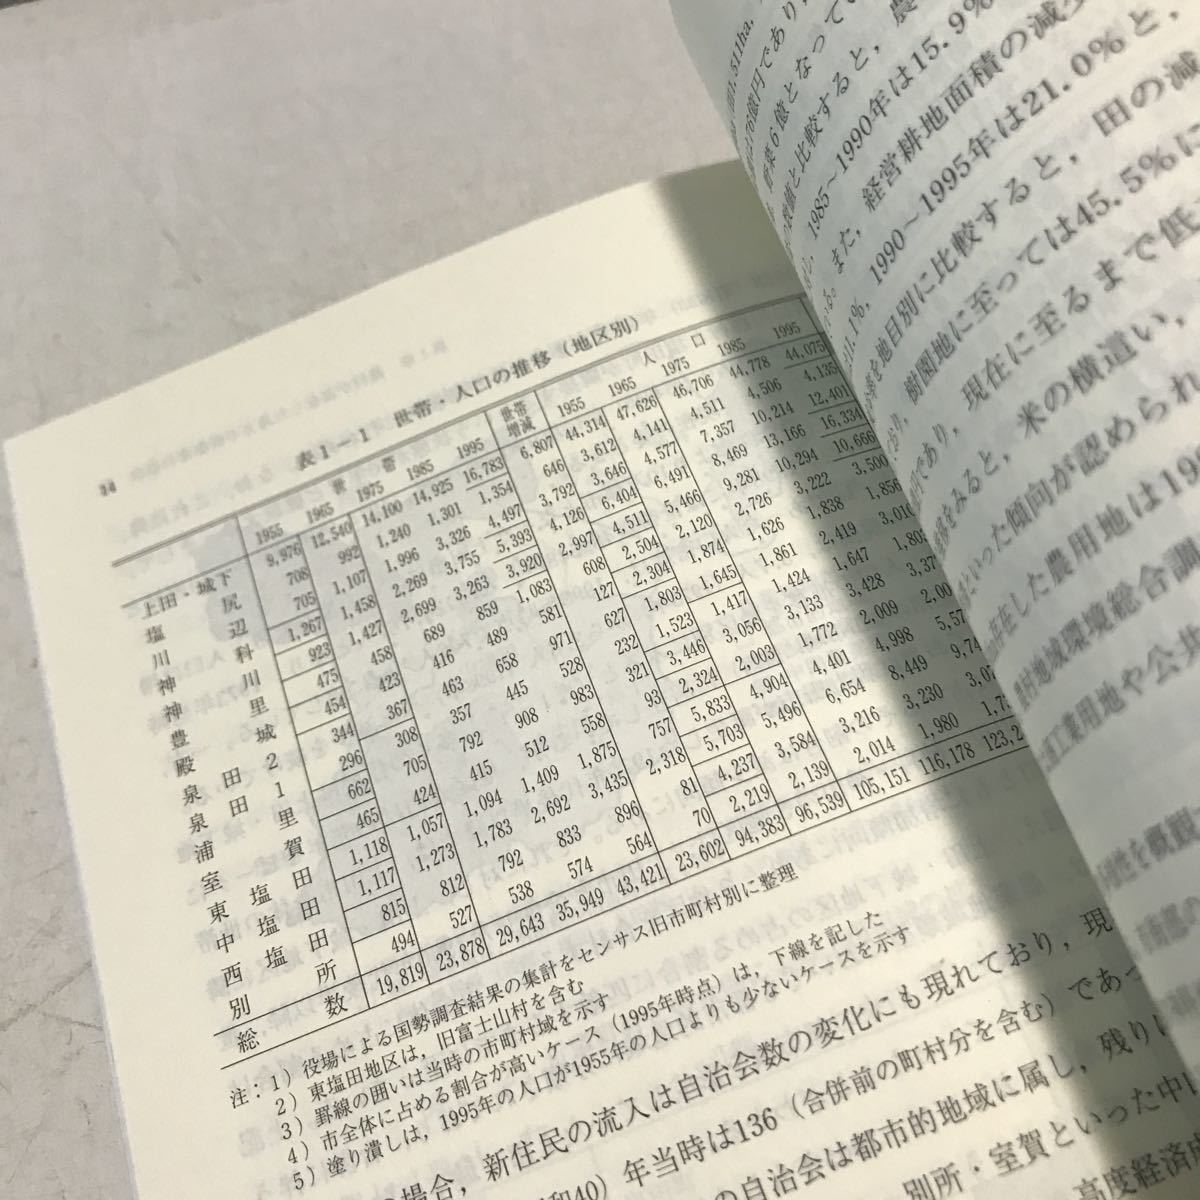 34
表1－1　世帯・人口の推移（地区別）
世　帯　世帯増減　人　口
1955 1965 1975 1985 1995 1955 1965 1975 1985 1995
上田・城下 9,976 12,540 14,100 14,925 16,783 6,807 44,314 47,626 46,706 44,778 44,075
塩尻 708 992 1,240 1,301 1,354 646 3,612 4,141 4,511 4,506 4,135
川辺 705 1,107 1,996 3,326 4,497 3,792 3,646 4,577 7,357 10,214 12,401
神科 1,267 1,458 2,269 3,755 5,393 4,126 6,404 6,491 8,469 13,166 16,334
神川 923 1,427 2,699 3,263 3,920 2,997 4,511 5,466 9,281 10,294 10,666
豊里 475 458 689 859 1,083 608 2,504 2,120 2,726 3,222 3,500
殿城 454 423 416 489 581 127 2,304 1,874 1,626 1,838 1,856
泉田2 344 367 463 658 971 627 1,803 1,645 1,861 2,419 3,010
泉田1 296 308 357 445 528 232 1,523 1,417 1,424 1,647 1,805
浦里 662 705 792 908 983 321 3,446 3,056 3,133 3,428 3,37
室賀 465 424 415 512 558 93 2,324 2,003 1,772 2,009 2,00
東塩田 1,118 1,057 1,094 1,409 1,875 757 5,833 4,904 4,401 4,998 5,57
中塩田 1,117 1,273 1,783 2,692 3,435 2,318 5,703 5,496 6,654 8,449 9,74
西塩田 815 812 792 833 896 81 4,237 3,584 3,216 3,230 3,07
別所 494 527 538 574 564 70 2,219 2,139 2,014 1,980 1,7
総数 19,819 23,878 29,643 35,949 43,421 23,602 94,383 96,539 105,151 116,178 123,2
注：1）役場による国勢調査結果の集計をセンサス旧市町村別に整理
2）東塩田地区は，旧富士山村を含む
3）罫線の囲いは当時の市町村域を示す
4）市全体に占める割合が高いケース（1995年時点）は，下線を記した
5）塗り潰しは，1995年の人口が1955年の人口よりも少ないケースを示す
の場合，新住民の流入は自治会数の変化にも現れており，現
和40）年当時は136（合併前の町村分を含む）であっ
の自治会は都市的地域に属し，残りし
別所・室賀といった中
高度経済成
511ha,
76億円であり
野菜6億となってい
の数値と比較すると，農
1985～1990年は15.9％
る。また，経営耕地面積の減少
11.1％，1990～1995年は21.0％と，
を地目別に比較すると，田の減
おり，樹園地に至っては45.5％に
円であり，現在に至るまで低
をみると，米の横這い，
といった傾向が認められ
在した農用地は19
農村地域環境総合調
工業用地や公共
性を概観